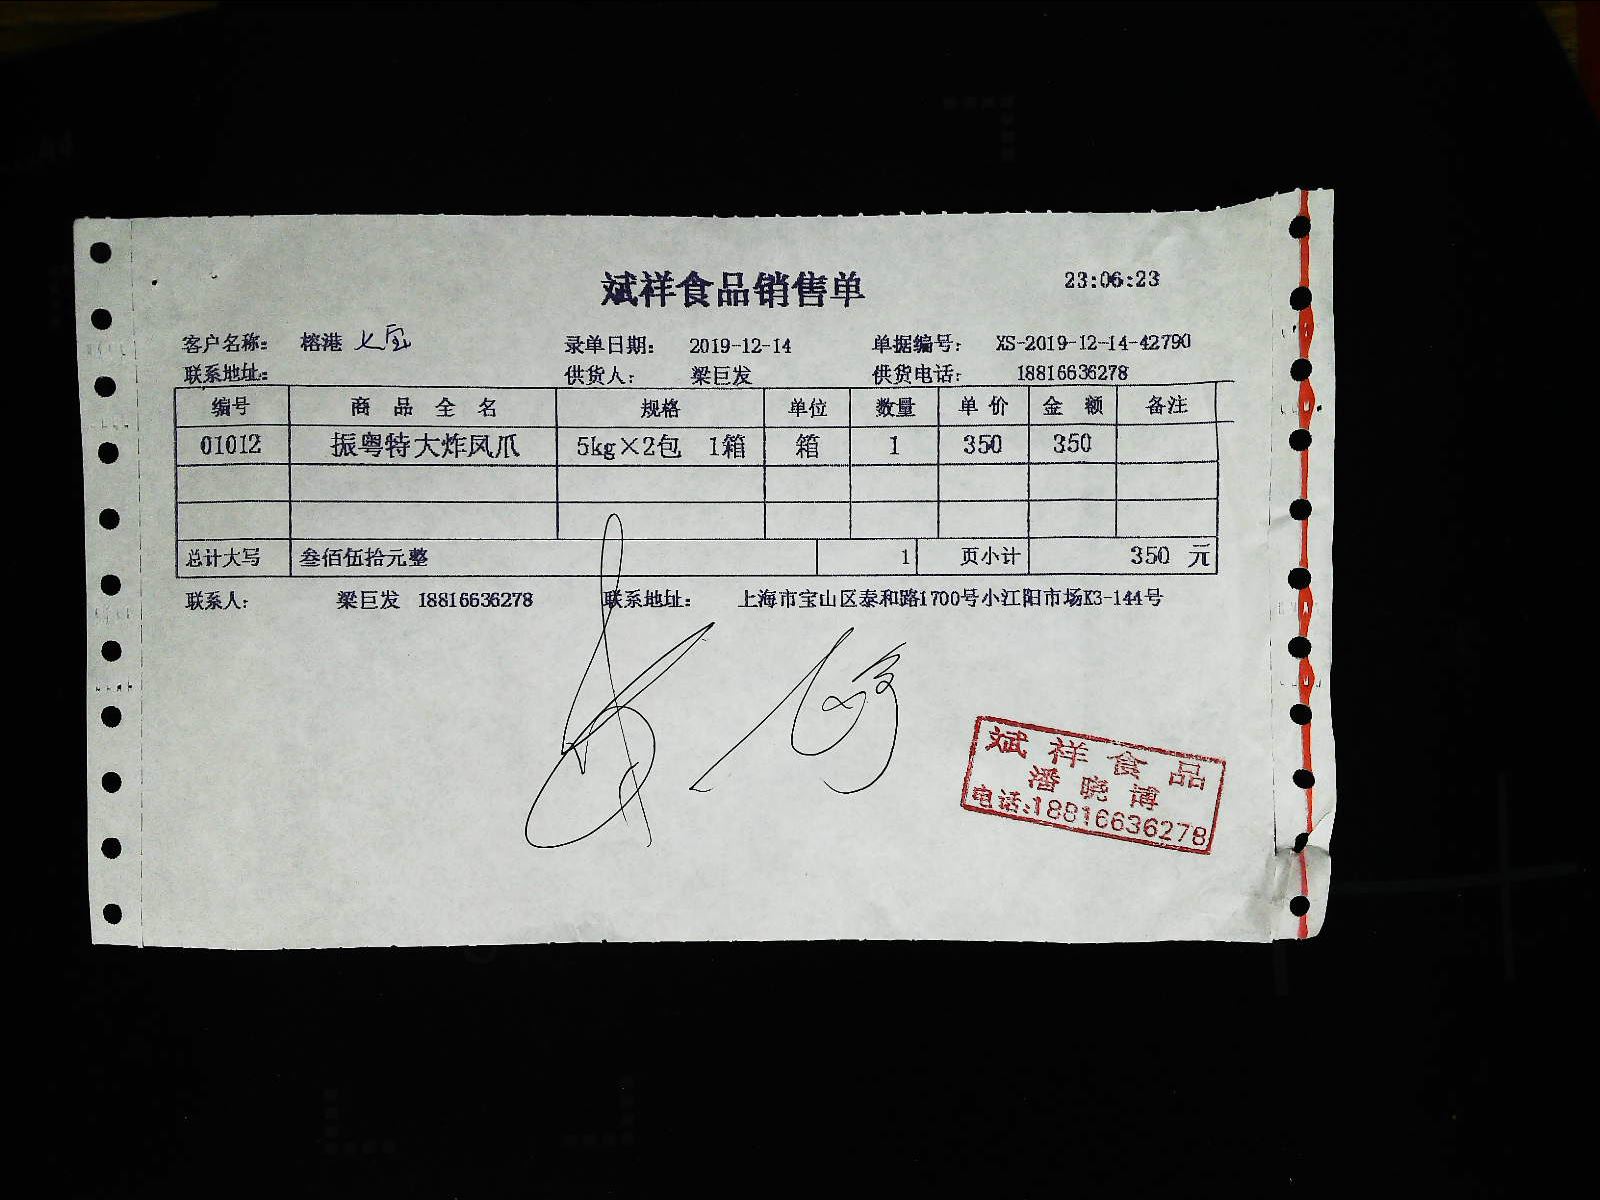 斌祥食品销售单 23:06:23
客户名称: 榕港 七宝 录单日期: 2019-12-14 单据编号: XS-2019-12-14-42790
联系地址: 供货人: 梁巨发 供货电话: 18816636278
编号 商品全名 规格 单位 数量 单价 金额 备注
01012 振粤特大炸凤爪 5kg×2包 1箱 箱 1 350 350
总计大写 叁佰伍拾元整 1 页小计 350 元
联系人: 梁巨发 18816636278 联系地址: 上海市宝山区泰和路1700号小江阳市场K3-144号
斌祥食品
潘晓博
电话:18816636278